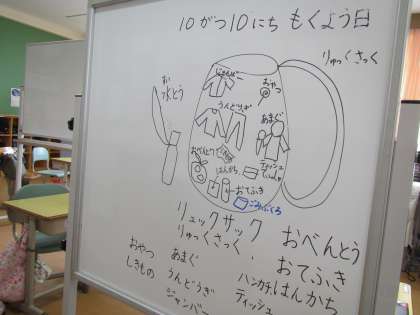 10がつ10にち もくよう日
りゅっくさっく
じゃんばー
おやつ
お
水とう
うんどうぎ
あまぐ
おべんとう
はんかち
ティッシュ
おてふき
ごみぶくろ
リュックサック
りゅっくさっく.
おべんとう
おやつ
あまぐ
おてふき
しきもの
うんどうぎ
ハンカチ,はんかち
ジャンバー
ティッシュ